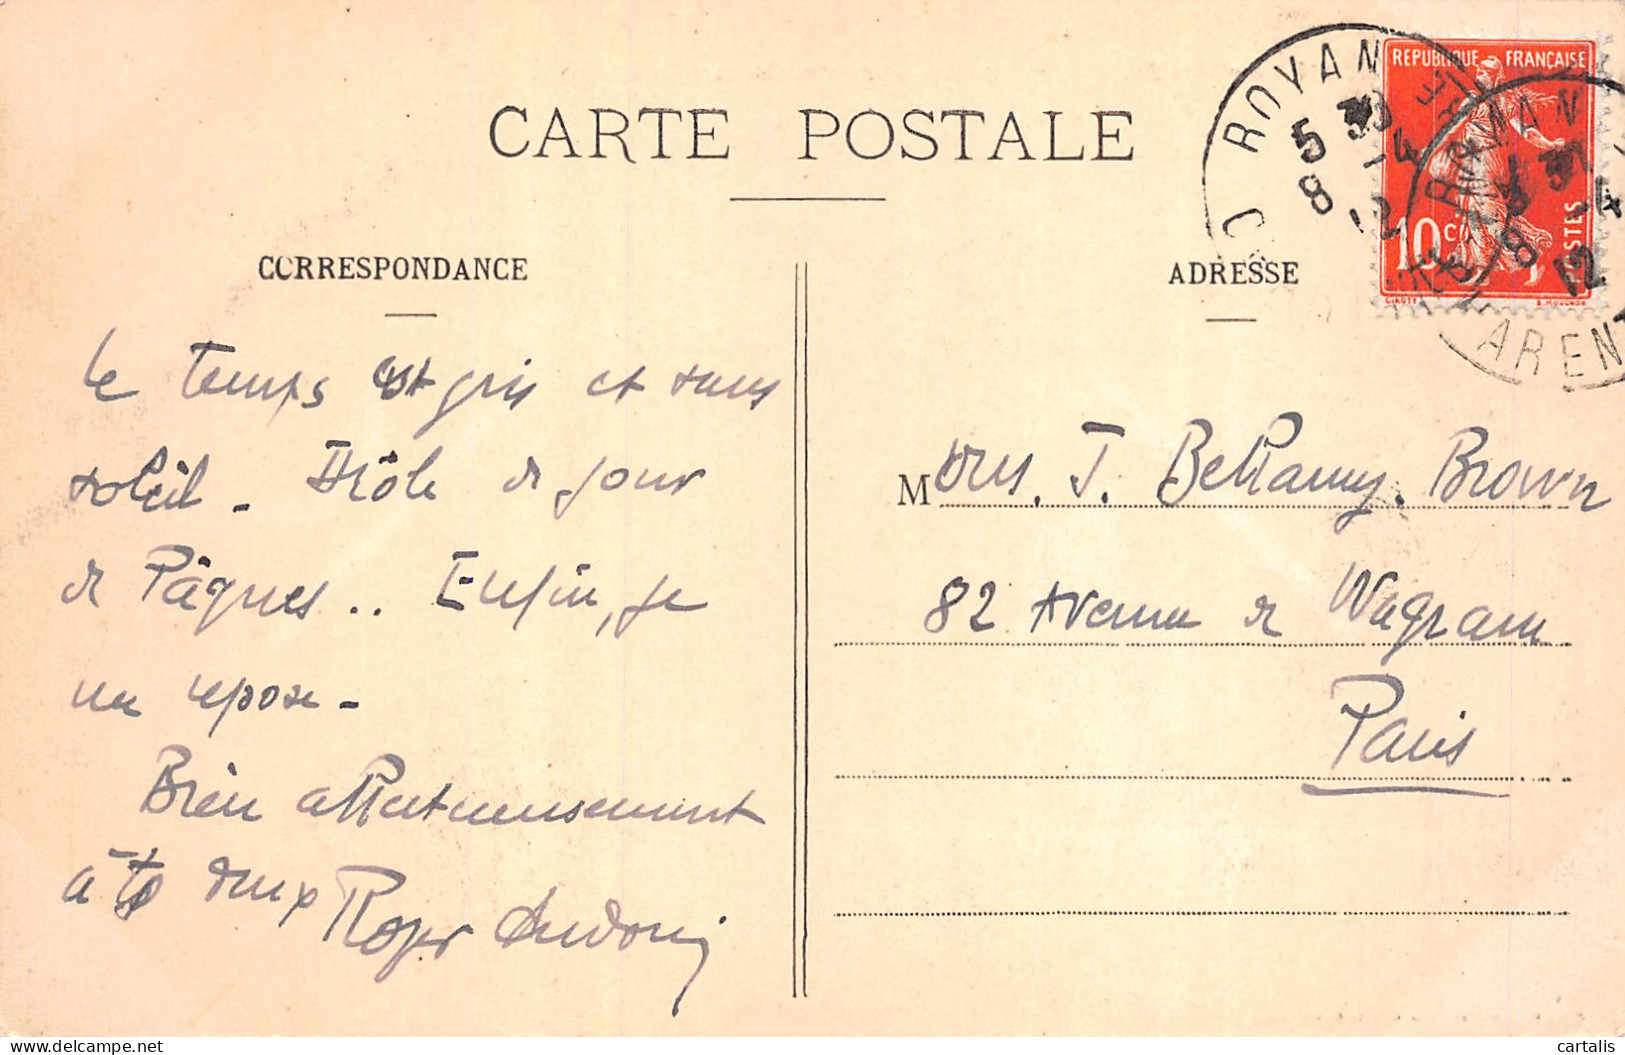 CARTE POSTALE
CORRESPONDANCE
Le Temps est gris et sans
soleil - Drôle de jour
de Pâques.. Enfin, je
me repose -
Bien affectueusement
à ts deux
Roger
ADRESSE
M
J. Bellamy. Brown
82 Avenue de Wagram
Paris
REPUBLIQUE FRANÇAISE
10 c
POSTES
ROYAN
5 30
8 -4
12
ROYAN
8 -4
12
delcampe.net
cartalis